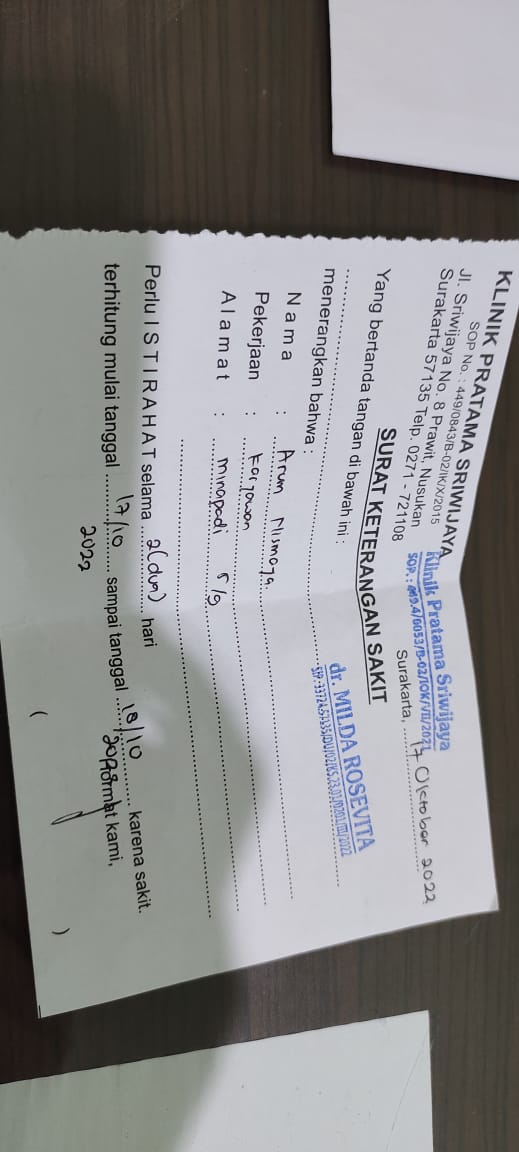 KLINIK PRATAMA SRIWIJAYA
SOP No. : 449/0843/B-02/IK/X/2015
Jl. Sriwijaya No. 8 Prawit, Nusukan
Surakarta 57135 Telp. 0271 - 721108
Klinik Pratama Sriwijaya
SOP. : 449.4/0053/B-02/IOK/VII/2021
Surakarta, 17 Oktober 2022
SURAT KETERANGAN SAKIT
Yang bertanda tangan di bawah ini :
dr. MILDA ROSEVITA
menerangkan bahwa :
Nama : Arum
Pekerjaan : Karyawan
Alamat : minapadi 5/9
Perlu ISTIRAHAT selama 2 (dua) hari
terhitung mulai tanggal 17/10 2022 sampai tanggal 18/10 2022 karena sakit.
Hormat kami,
( )